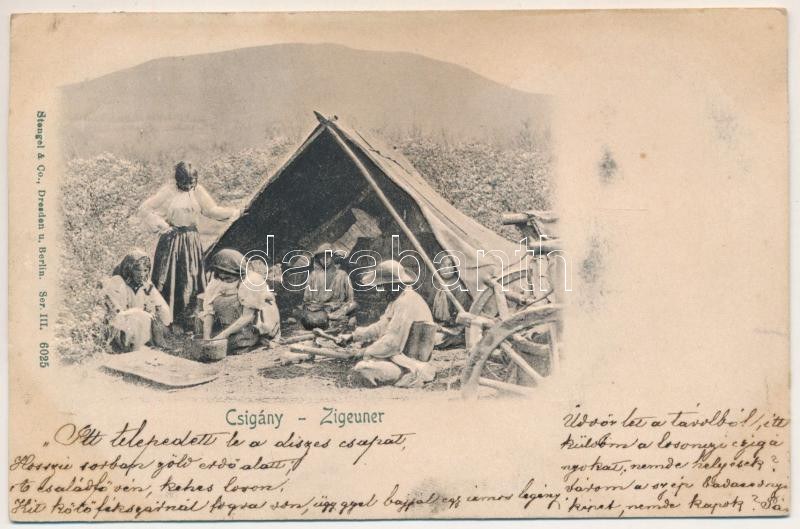 Stengel & Co., Dresden u. Berlin. Ser. III. 6025
darabanth.com
Csigány – Zigeuner
"Itt telepedett le a diszes csapat,
Hosszú sorban zöld erdő alatt,
A családfő vén, kehes lovon,
Kit kötőfékszárnál fogva von, ügygyel bajjal egy izmos legény
Üdvözlet a távolból, itt
küldöm a losonczi czigá
nyokat, nemde helyesek?
Várom a szép Badacsonyi
képet, nemde kapok?